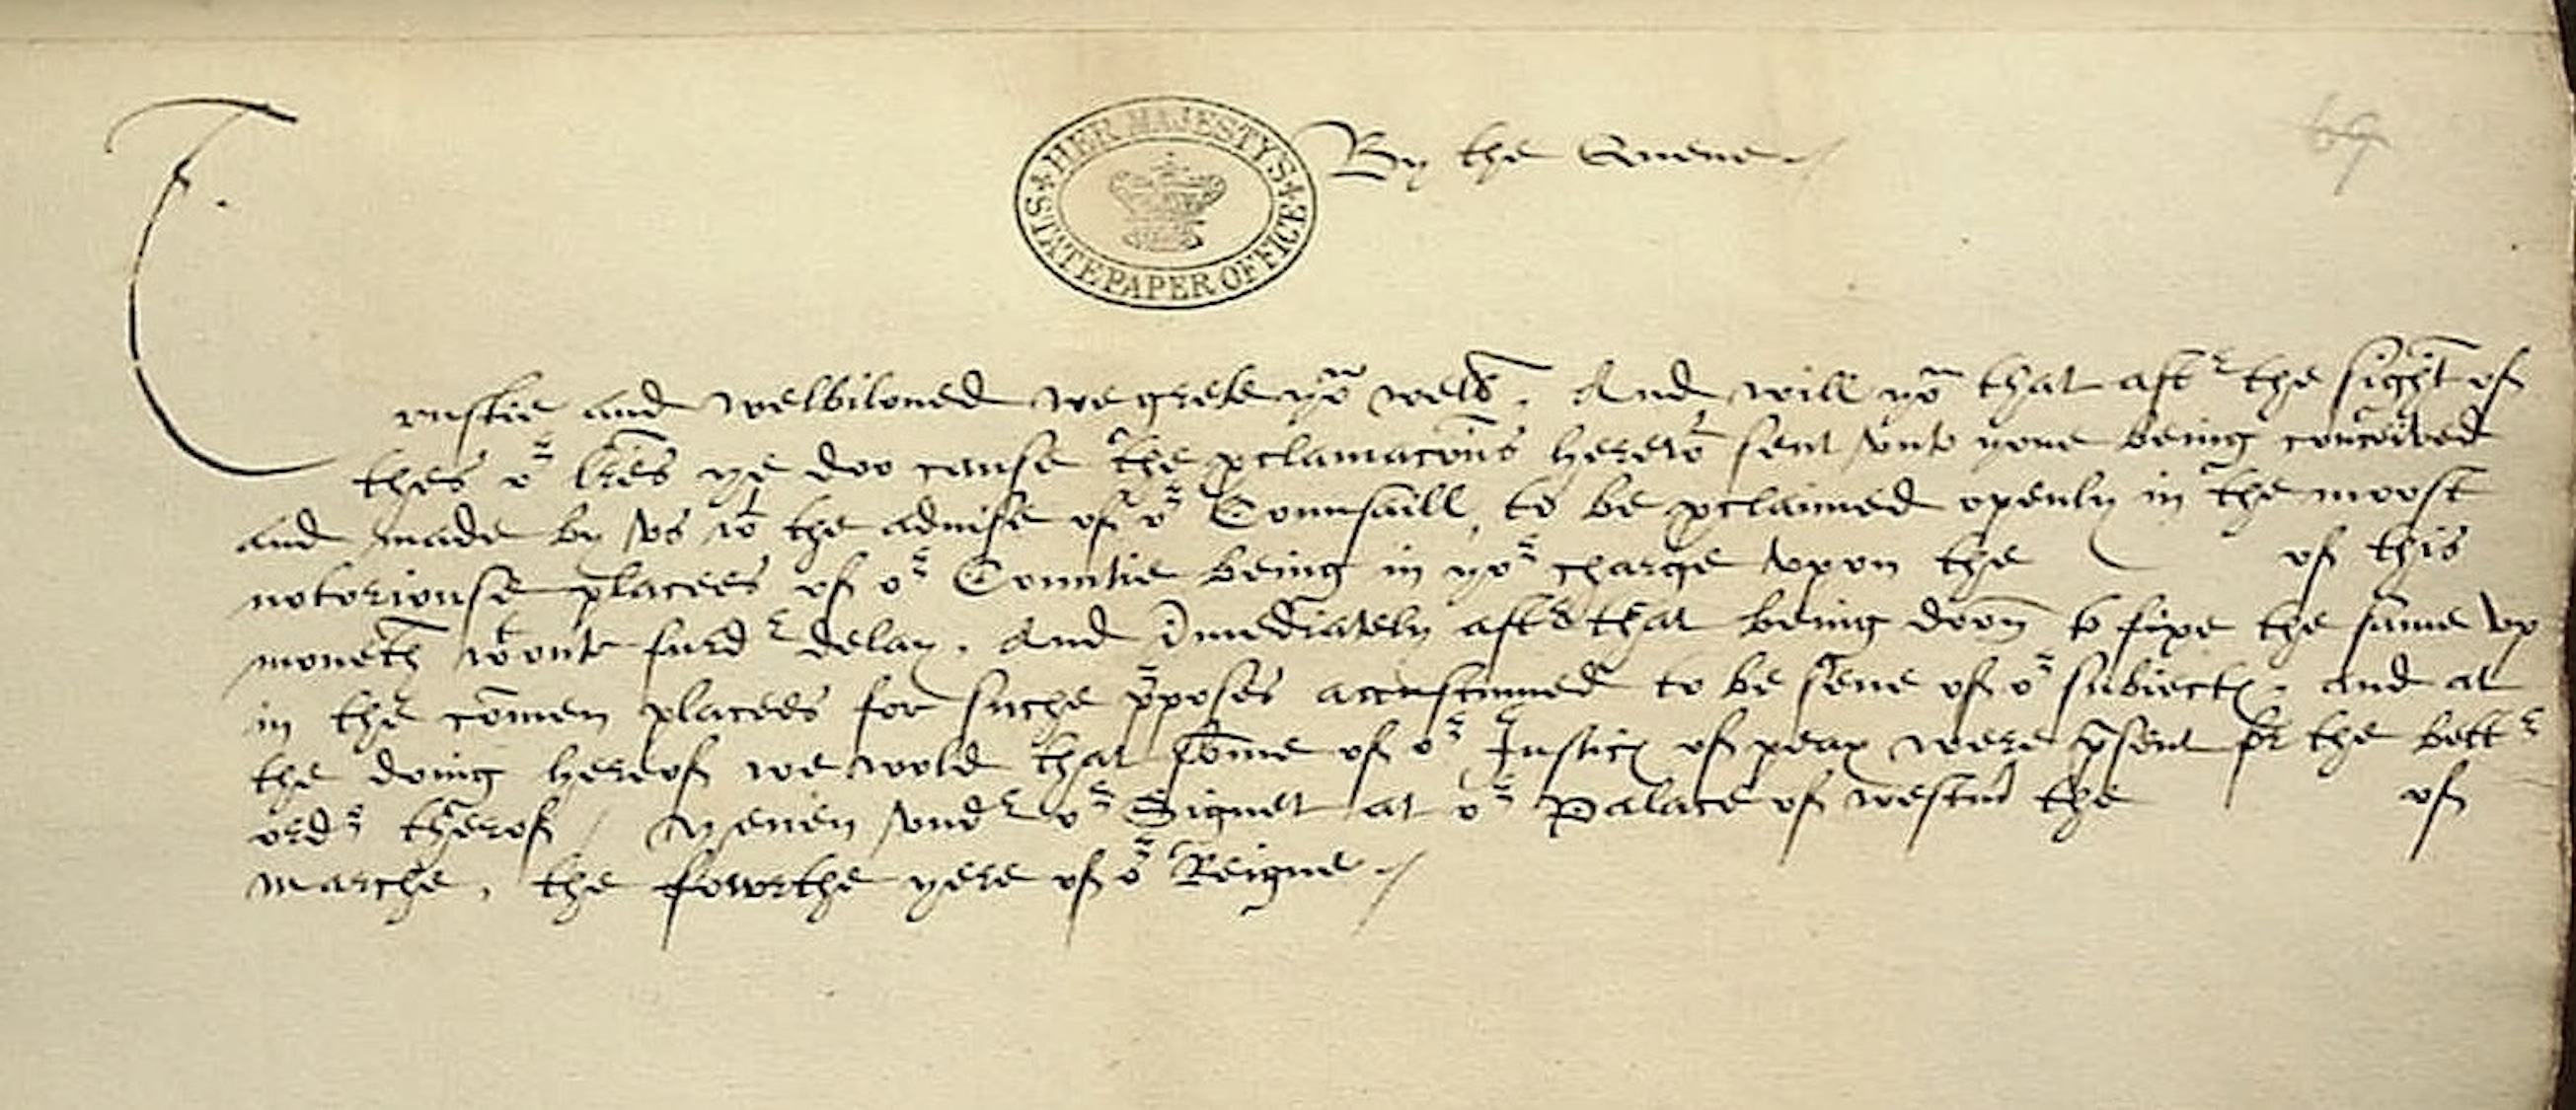 By the Quene
69
HER MAJESTY'S STATE PAPER OFFICE
Trustie and welbiloued we grete yoᵘ well. And will yoᵘ that aftʳ the sight of
thes oʳ lr̃es ye doo cause the pclamacons̃ herewᵗ sent vnto youe being conceived
and made by vs wᵗ the aduise of oʳ Counsaill, to be pclaimed openly in the moost
notoriouse placees of oʳ Countie being in yoʳ charge vpon the of this
moneth wᵗoute furdʳ delay. And im̃ediately aftʳ that being doon to fixe the same vp
in the com̃en placees for suche pʳposes accustumed to be sene of oʳ subiectℯ. And at
the doing hereof we wold that some of oʳ Justicℯ of peax were pʳsent for the bettʳ
ordʳ therof / Yeuen vndʳ oʳ Signet at oʳ Palace of westm̃ the of
marche, the fowrthe yere of oʳ Reigne